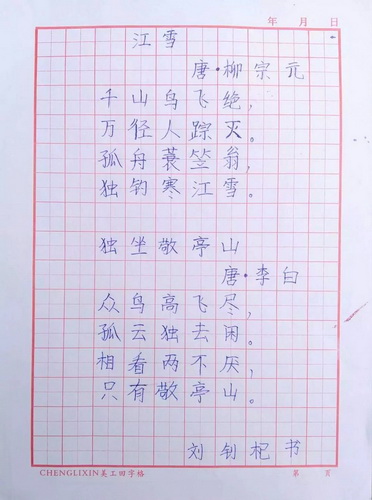 年 月 日
江雪
唐·柳宗元
千山鸟飞绝,
万径人踪灭。
孤舟蓑笠翁,
独钓寒江雪。
独坐敬亭山
唐·李白
众鸟高飞尽,
孤云独去闲。
相看两不厌,
只有敬亭山。
刘钊杞书
CHENGLIXIN美工田字格 第 页